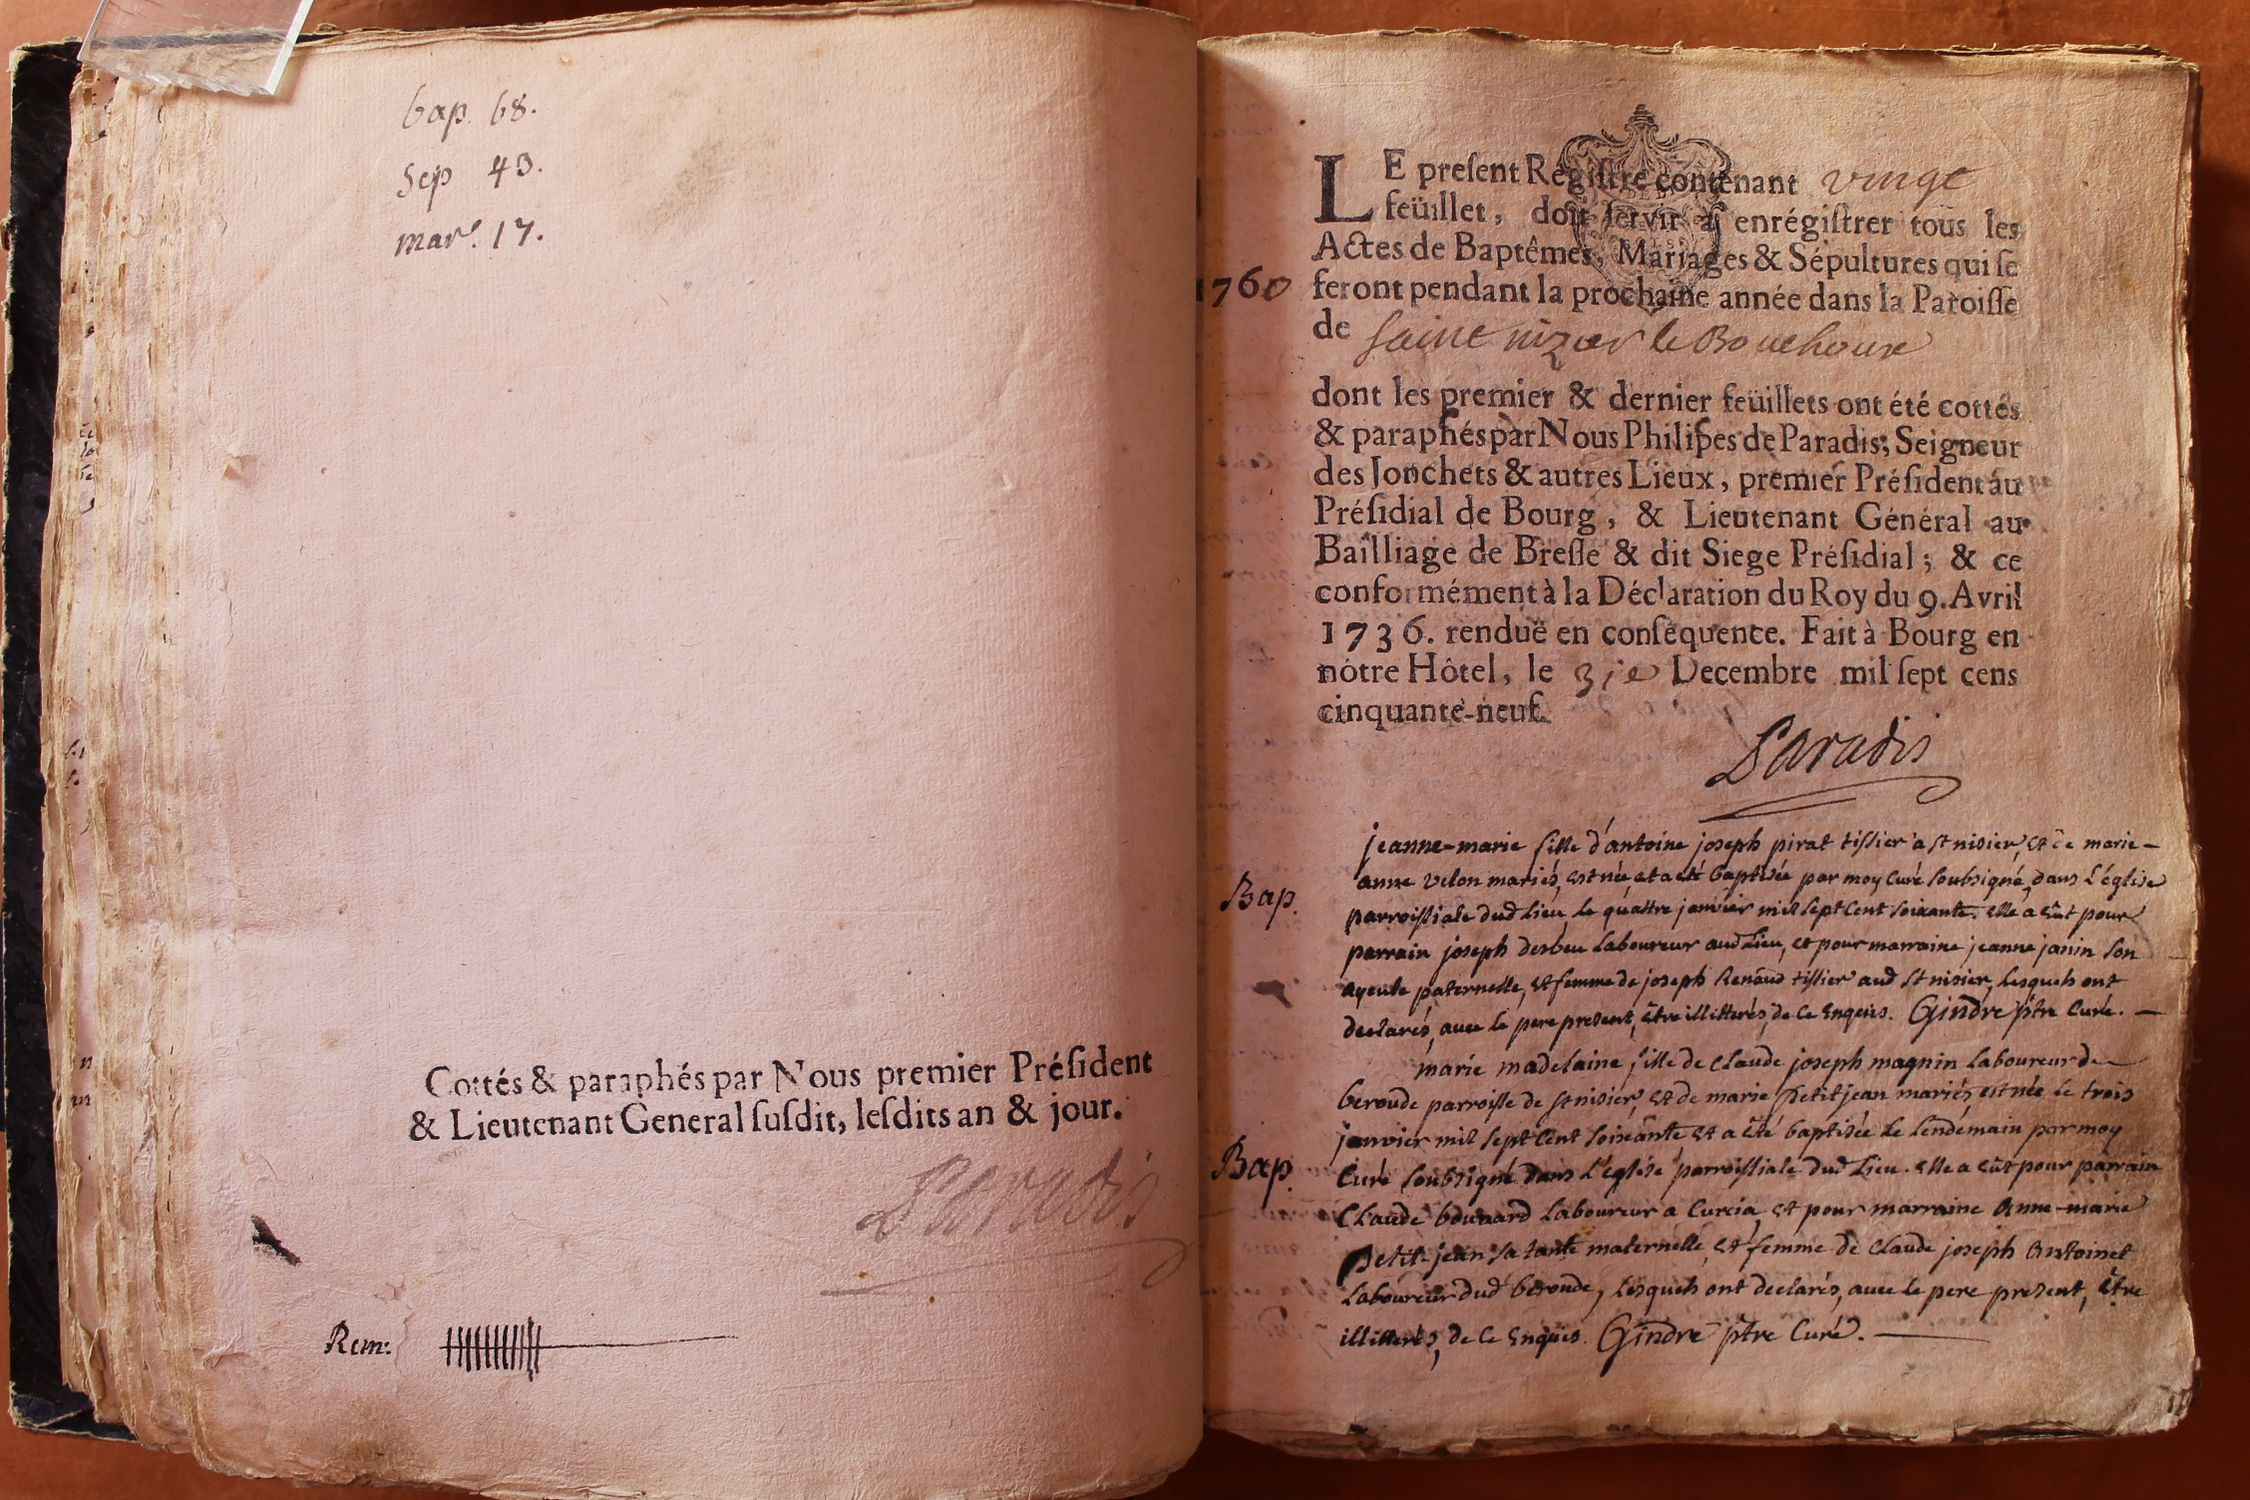 bap. 68.
Sep 43.
mar. 17.
Cottés & paraphés par Nous premier Préſident
& Lieutenant General ſuſdit, leſdits an & jour.
Paradis
Rem:
1760
LE preſent Régiſtre contenant vingt
feüillet, doit ſervir à enrégiſtrer tous les
Actes de Baptêmes, Mariages & Sépultures qui ſe
feront pendant la prochaine année dans la Paroiſſe
de Saint nizier le Bouchoux
dont les premier & dernier feüillets ont été cottés
& paraphés par Nous Philipes de Paradis, Seigneur
des Jonchets & autres Lieux, premier Préſident au
Préſidial de Bourg, & Lieutenant Général au
Bailliage de Breſſe & dit Siege Préſidial; & ce
conformément à la Déclaration du Roy du 9. Avril
1736. renduë en conſéquence. Fait à Bourg en
nôtre Hôtel, le 31e Decembre mil ſept cens
cinquante-neuf.
Paradis
Bap.
jeanne-marie fille d'antoine joseph pirat tissier a st nisier, et de marie-
anne velon mariés, est née et a eté baptisée par moy curé soubsigné, dans l'église
parroissiale dud lieu le quattre janvier mil sept cent soixante. elle a eût pour
parrain joseph desbeu laboureur aud lieu, et pour marraine jeanne janin son
ayeule paternelle, et femme de joseph Renaud tissier aud st nisier, lesquels ont
declarés, avec le pere present, être illitterés, de ce enquis. Gindre ptre curé.
marie madelaine fille de claude joseph magnin laboureur de
Bap.
beroude parroisse de st nisier, et de marie petitjean mariés est née le trois
janvier mil sept cent soixante et a été baptisée le lendemain par moy
curé soubsigné dans l'église parroissiale dud lieu. elle a eût pour parrain
claude bouuard laboureur a curcia, et pour marraine anne-marie
petit-jean sa tante maternelle, et femme de claude joseph antoinet
laboureur dud beroude, lesquels ont declarés, avec le pere present, être
illitterés, de ce enquis. Gindre ptre curé.